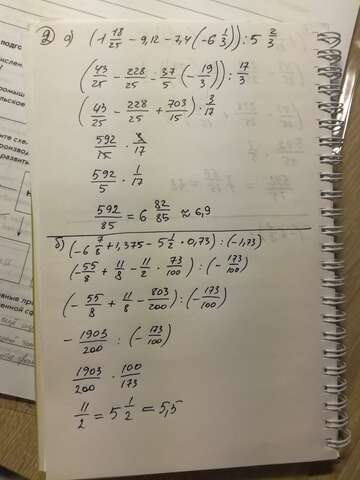 подго
числен
промыш
сельское
ите схе
роизвод
развити
Н
2 а) (1 18/25 - 9,12 - 7,4 (-6 1/3)) : 5 2/3
(43/25 - 228/25 - 37/5 (-19/3)) : 17/3
(43/25 - 228/25 + 703/15) · 3/17
592/15 · 3/17
592/5 · 1/17
592/85 = 6 82/85 ≈ 6,9
б) (-6 7/8 + 1,375 - 5 1/2 · 0,73) : (-1,73)
(-55/8 + 11/8 - 11/2 · 73/100) : (-173/100)
(-55/8 + 11/8 - 803/200) : (-173/100)
- 1903/200 : (-173/100)
1903/200 · 100/173
11/2 = 5 1/2 = 5,5
вные пр
енной сф